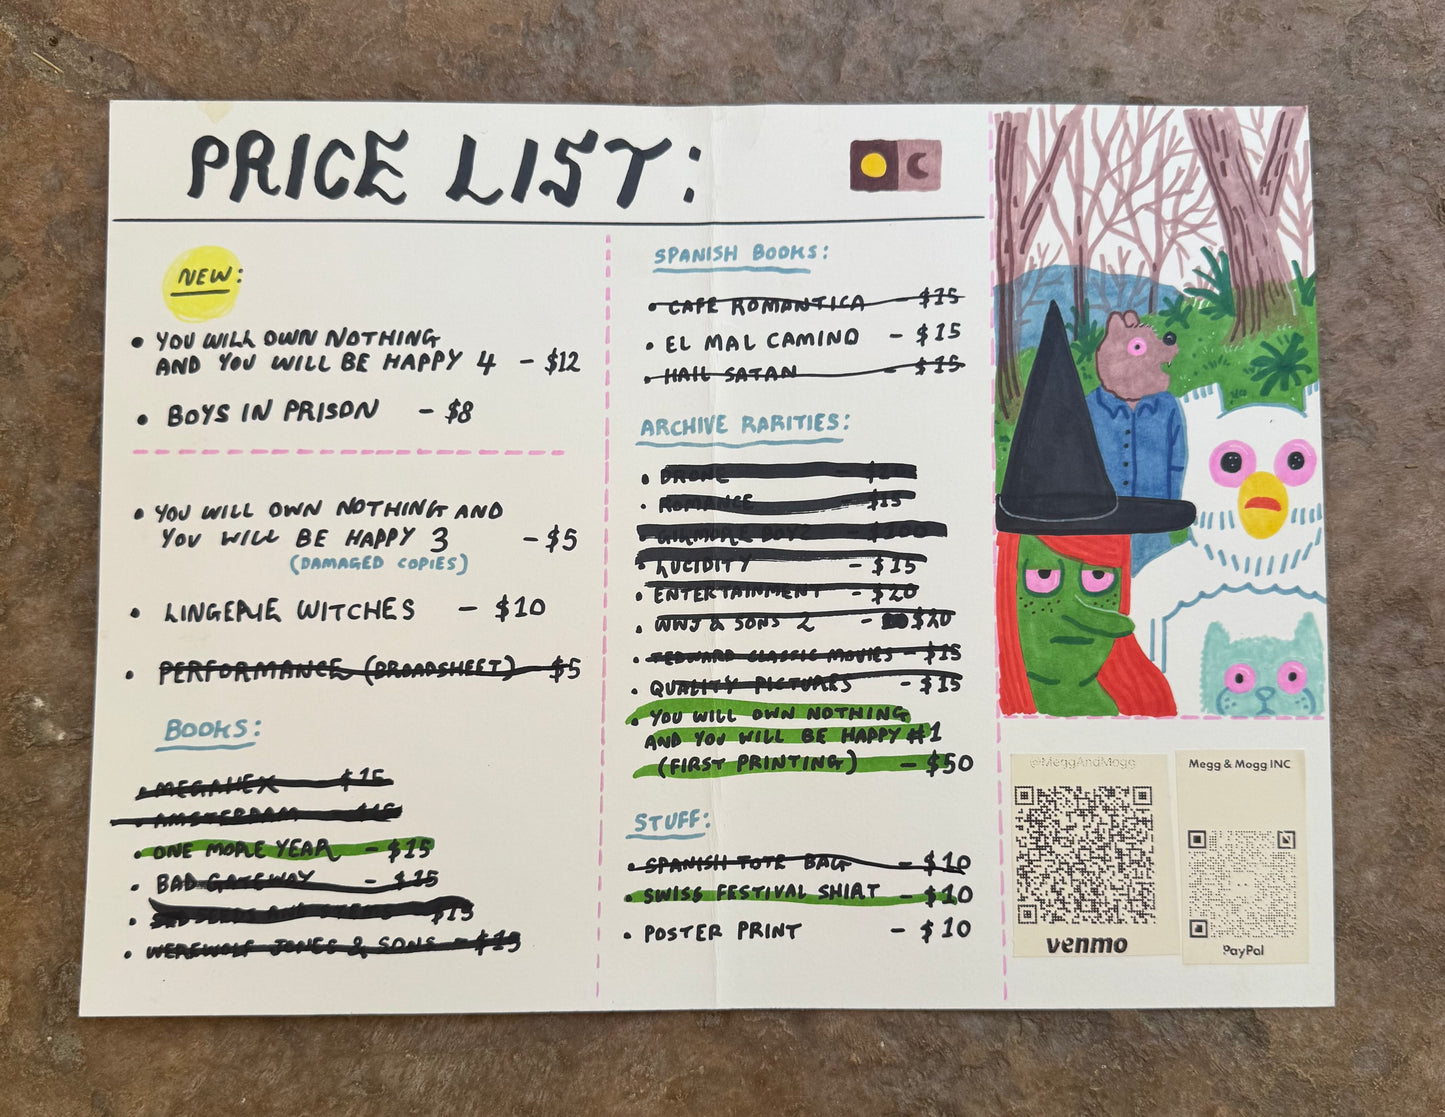 PRICE LIST:
NEW:
• YOU WILL OWN NOTHING
AND YOU WILL BE HAPPY 4 - $12
• BOYS IN PRISON - $8
• YOU WILL OWN NOTHING AND
YOU WILL BE HAPPY 3 - $5
(DAMAGED COPIES)
• LINGERIE WITCHES - $10
• PERFORMANCE (BROADSHEET) - $5
BOOKS:
• MEGAHEX $15
• AMSTERDAM $15
• ONE MORE YEAR - $15
• BAD GATEWAY - $15
• $15
• WEREWOLF JONES & SONS - $15
SPANISH BOOKS:
• CAFE ROMANTICA - $15
• EL MAL CAMINO - $15
• HAIL SATAN - $15
ARCHIVE RARITIES:
• DRONE
• ROMANCE - $15
• LUCIDITY - $15
• ENTERTAINMENT - $20
• WWJ & SONS 2 - $20
• TEDWARD CLASSIC MOVIES - $15
• QUALITY PICTURES - $15
• YOU WILL OWN NOTHING
AND YOU WILL BE HAPPY #1
(FIRST PRINTING) - $50
STUFF:
• SPANISH TOTE BAG - $10
• SWISS FESTIVAL SHIRT - $10
• POSTER PRINT - $10
@MeggAndMogg
venmo
Megg & Mogg INC
PayPal